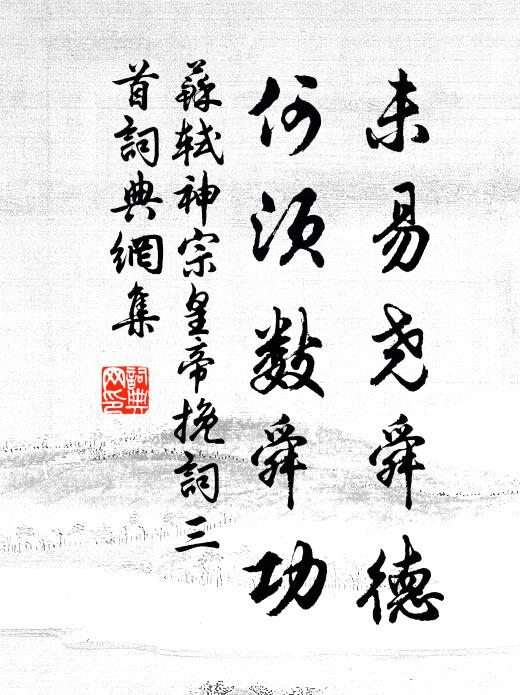 未易尧舜德
何須數舜功
蘇軾神宗皇帝挽詞三
首詞典網集
詞典
网印